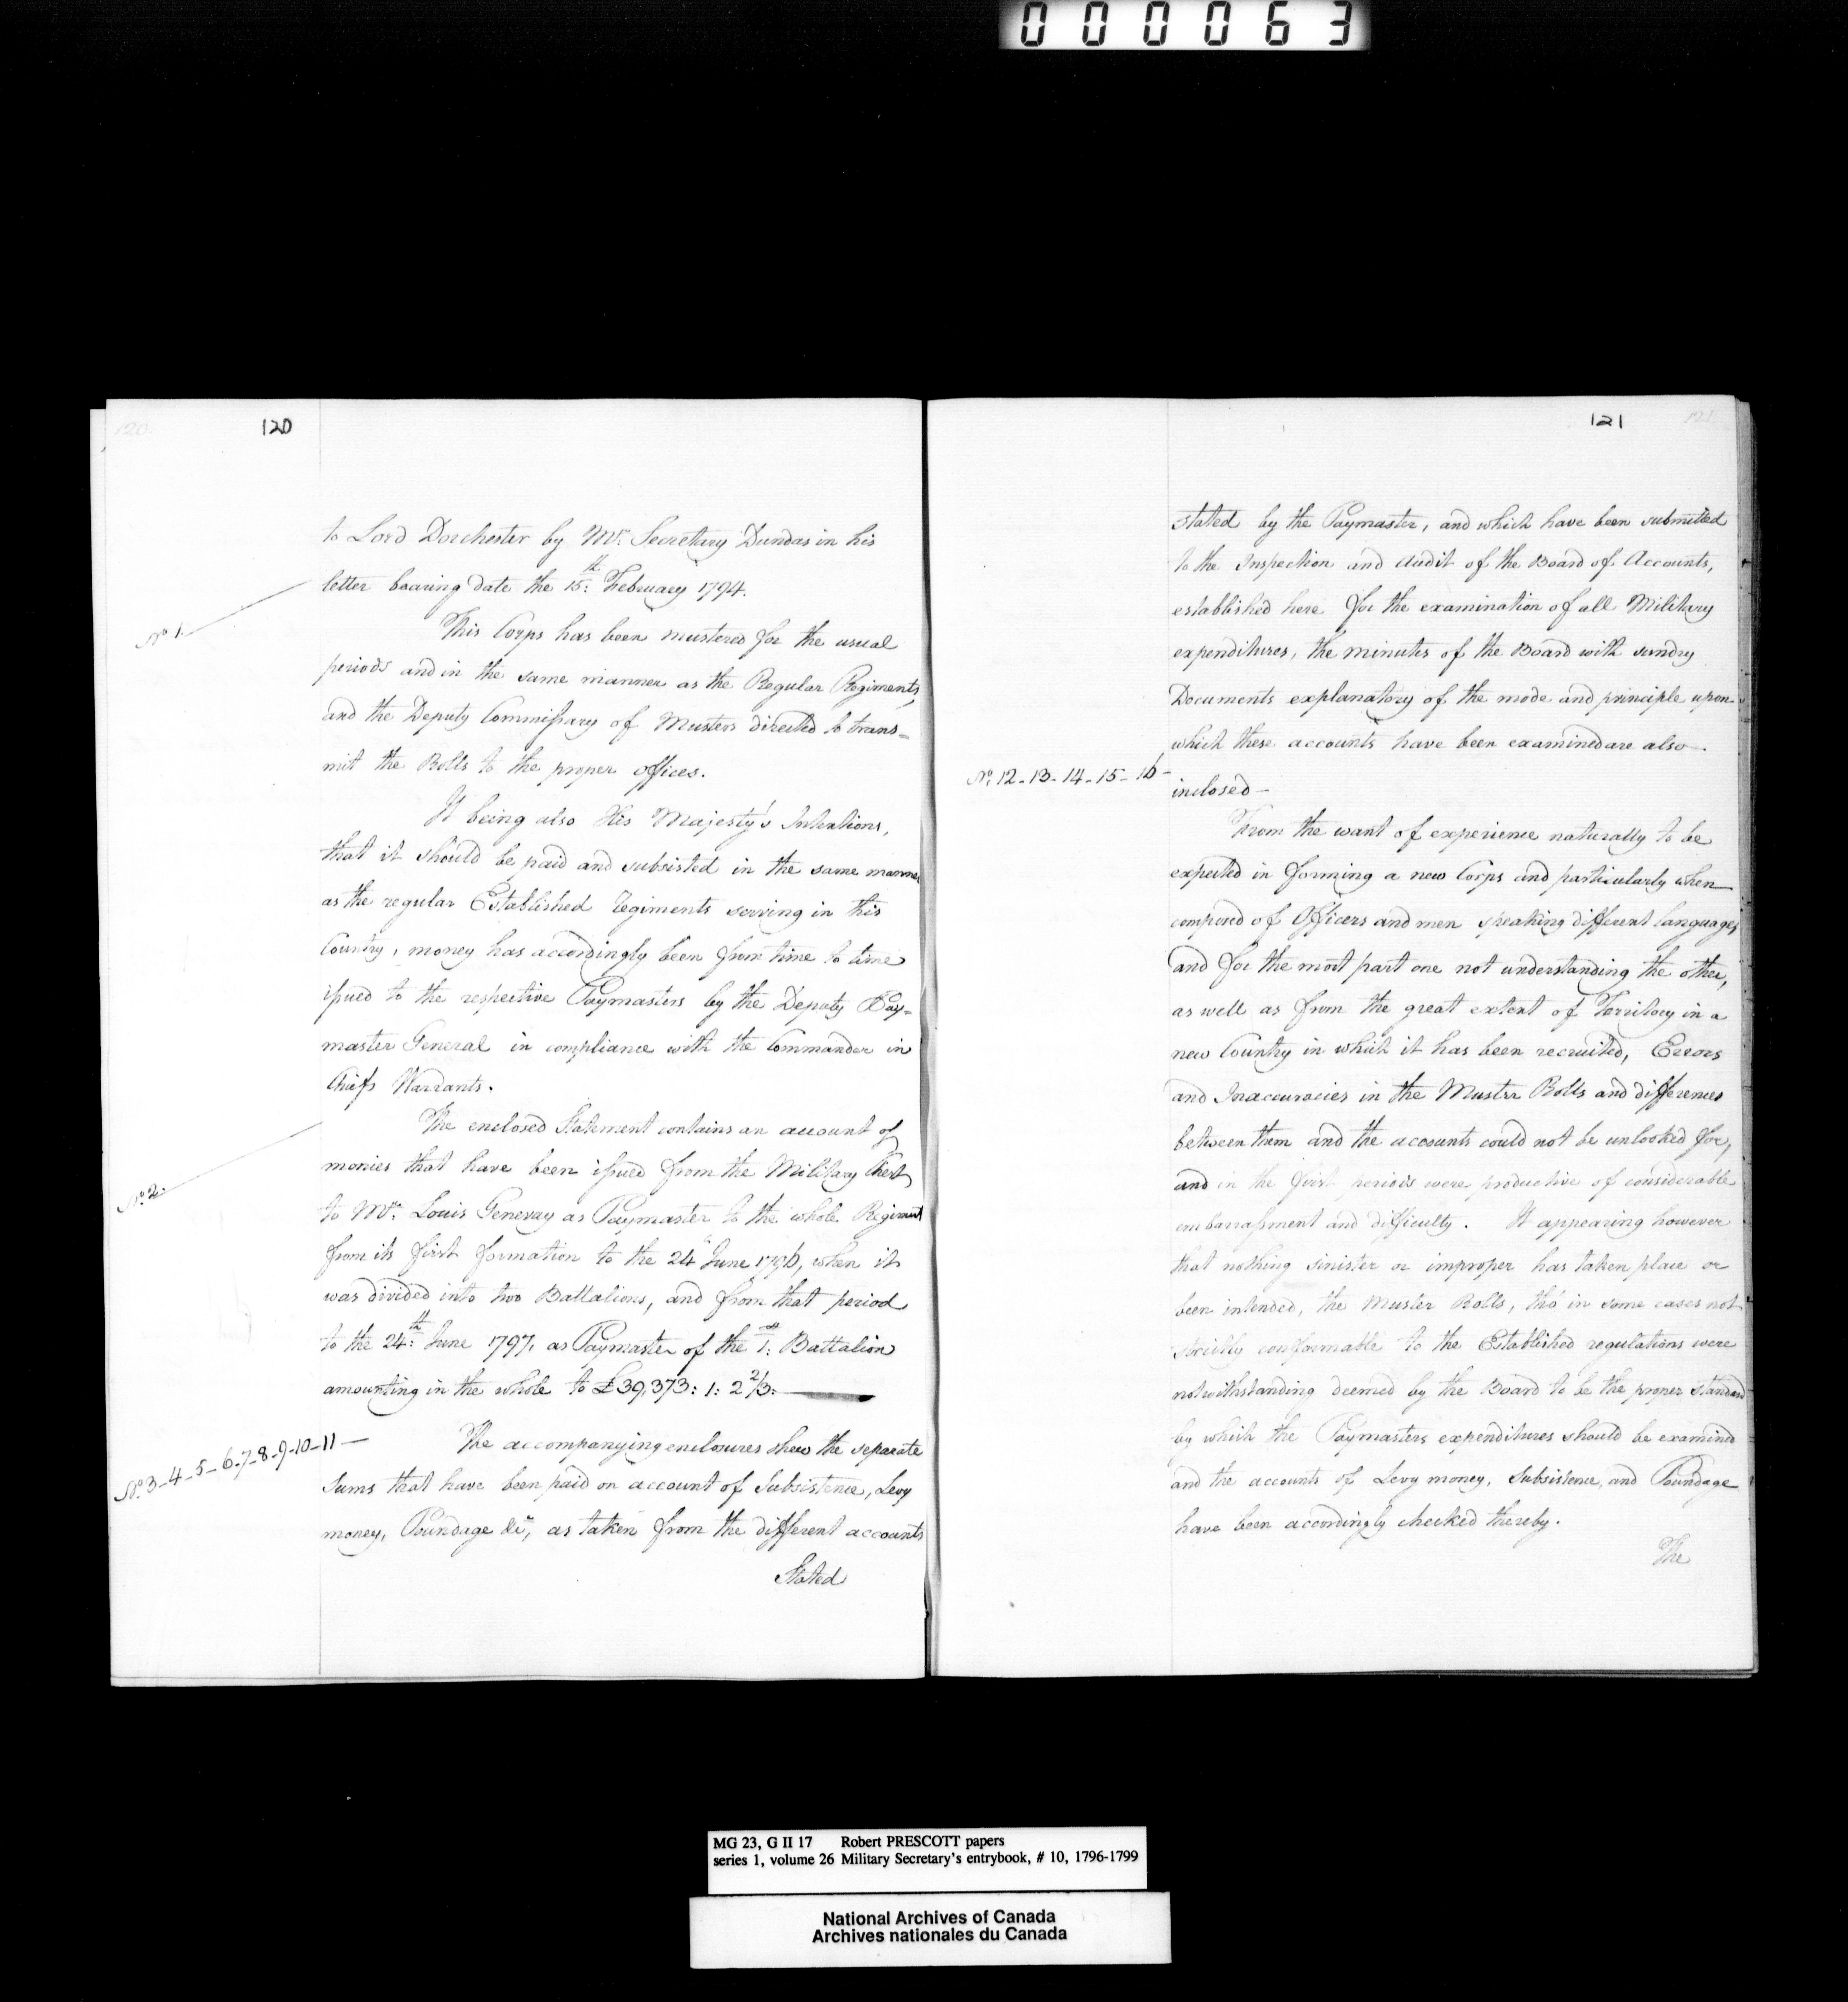 000063
120
120
to Lord Dorchester by Mr. Secretary Dundas in his
letter bearing date the 15th: February 1794.
No 1.
This Corps has been mustered for the usual
periods and in the same manner as the Regular Regiments,
and the Deputy Commissary of Musters directed to trans=
mit the Rolls to the proper offices.
It being also His Majesty's Intentions,
that it should be paid and subsisted in the same manner
as the regular Established Regiments serving in this
Country, money has accordingly been from time to time
issued to the respective Paymasters by the Deputy Pay=
master General in compliance with the Commander in
Chiefs Warrants.
The enclosed Statement contains an account of
monies that have been issued from the Military Chest
No. 2.
to Mr. Louis Genevay as Paymaster to the whole Regiment
from its first formation to the 24th June 1796, when it
was divided into two Battalions, and from that period
to the 24th: June 1797, as Paymaster of the 1st: Battalion
amounting in the whole to £39,373: 1: 2 2/3.
No. 3-4-5-6-7-8-9-10-11-
The accompanying enclosures shew the separate
Sums that have been paid on account of Subsistence, Levy
money, Poundage &ca, as taken from the different accounts
Stated
121
121
stated by the Paymaster, and which have been submitted
to the Inspection and Audit of the Board of Accounts,
established here for the examination of all Military
expenditures, the minutes of the Board with sundry
Documents explanatory of the mode and principle upon
which these accounts have been examined are also
No. 12-13-14-15-16-
inclosed-
From the want of experience naturally to be
expected in forming a new Corps and particularly when
composed of Officers and men speaking different languages
and for the most part one not understanding the other,
as well as from the great extent of Territory in a
new Country in which it has been recruited, Errors
and Inaccuracies in the Muster Rolls and differences
between them and the accounts could not be unlooked for,
and in the first periods were productive of considerable
embarrassment and difficulty. It appearing however
that nothing sinister or improper has taken place or
been intended, the Muster Rolls, tho' in some cases not
strictly conformable to the Established regulations were
notwithstanding deemed by the Board to be the proper standard
by which the Paymasters expenditures should be examined
and the accounts of Levy money, Subsistence, and Poundage
have been accordingly checked thereby.
The
MG 23, G II 17 Robert PRESCOTT papers
series 1, volume 26 Military Secretary's entrybook, # 10, 1796-1799
National Archives of Canada
Archives nationales du Canada